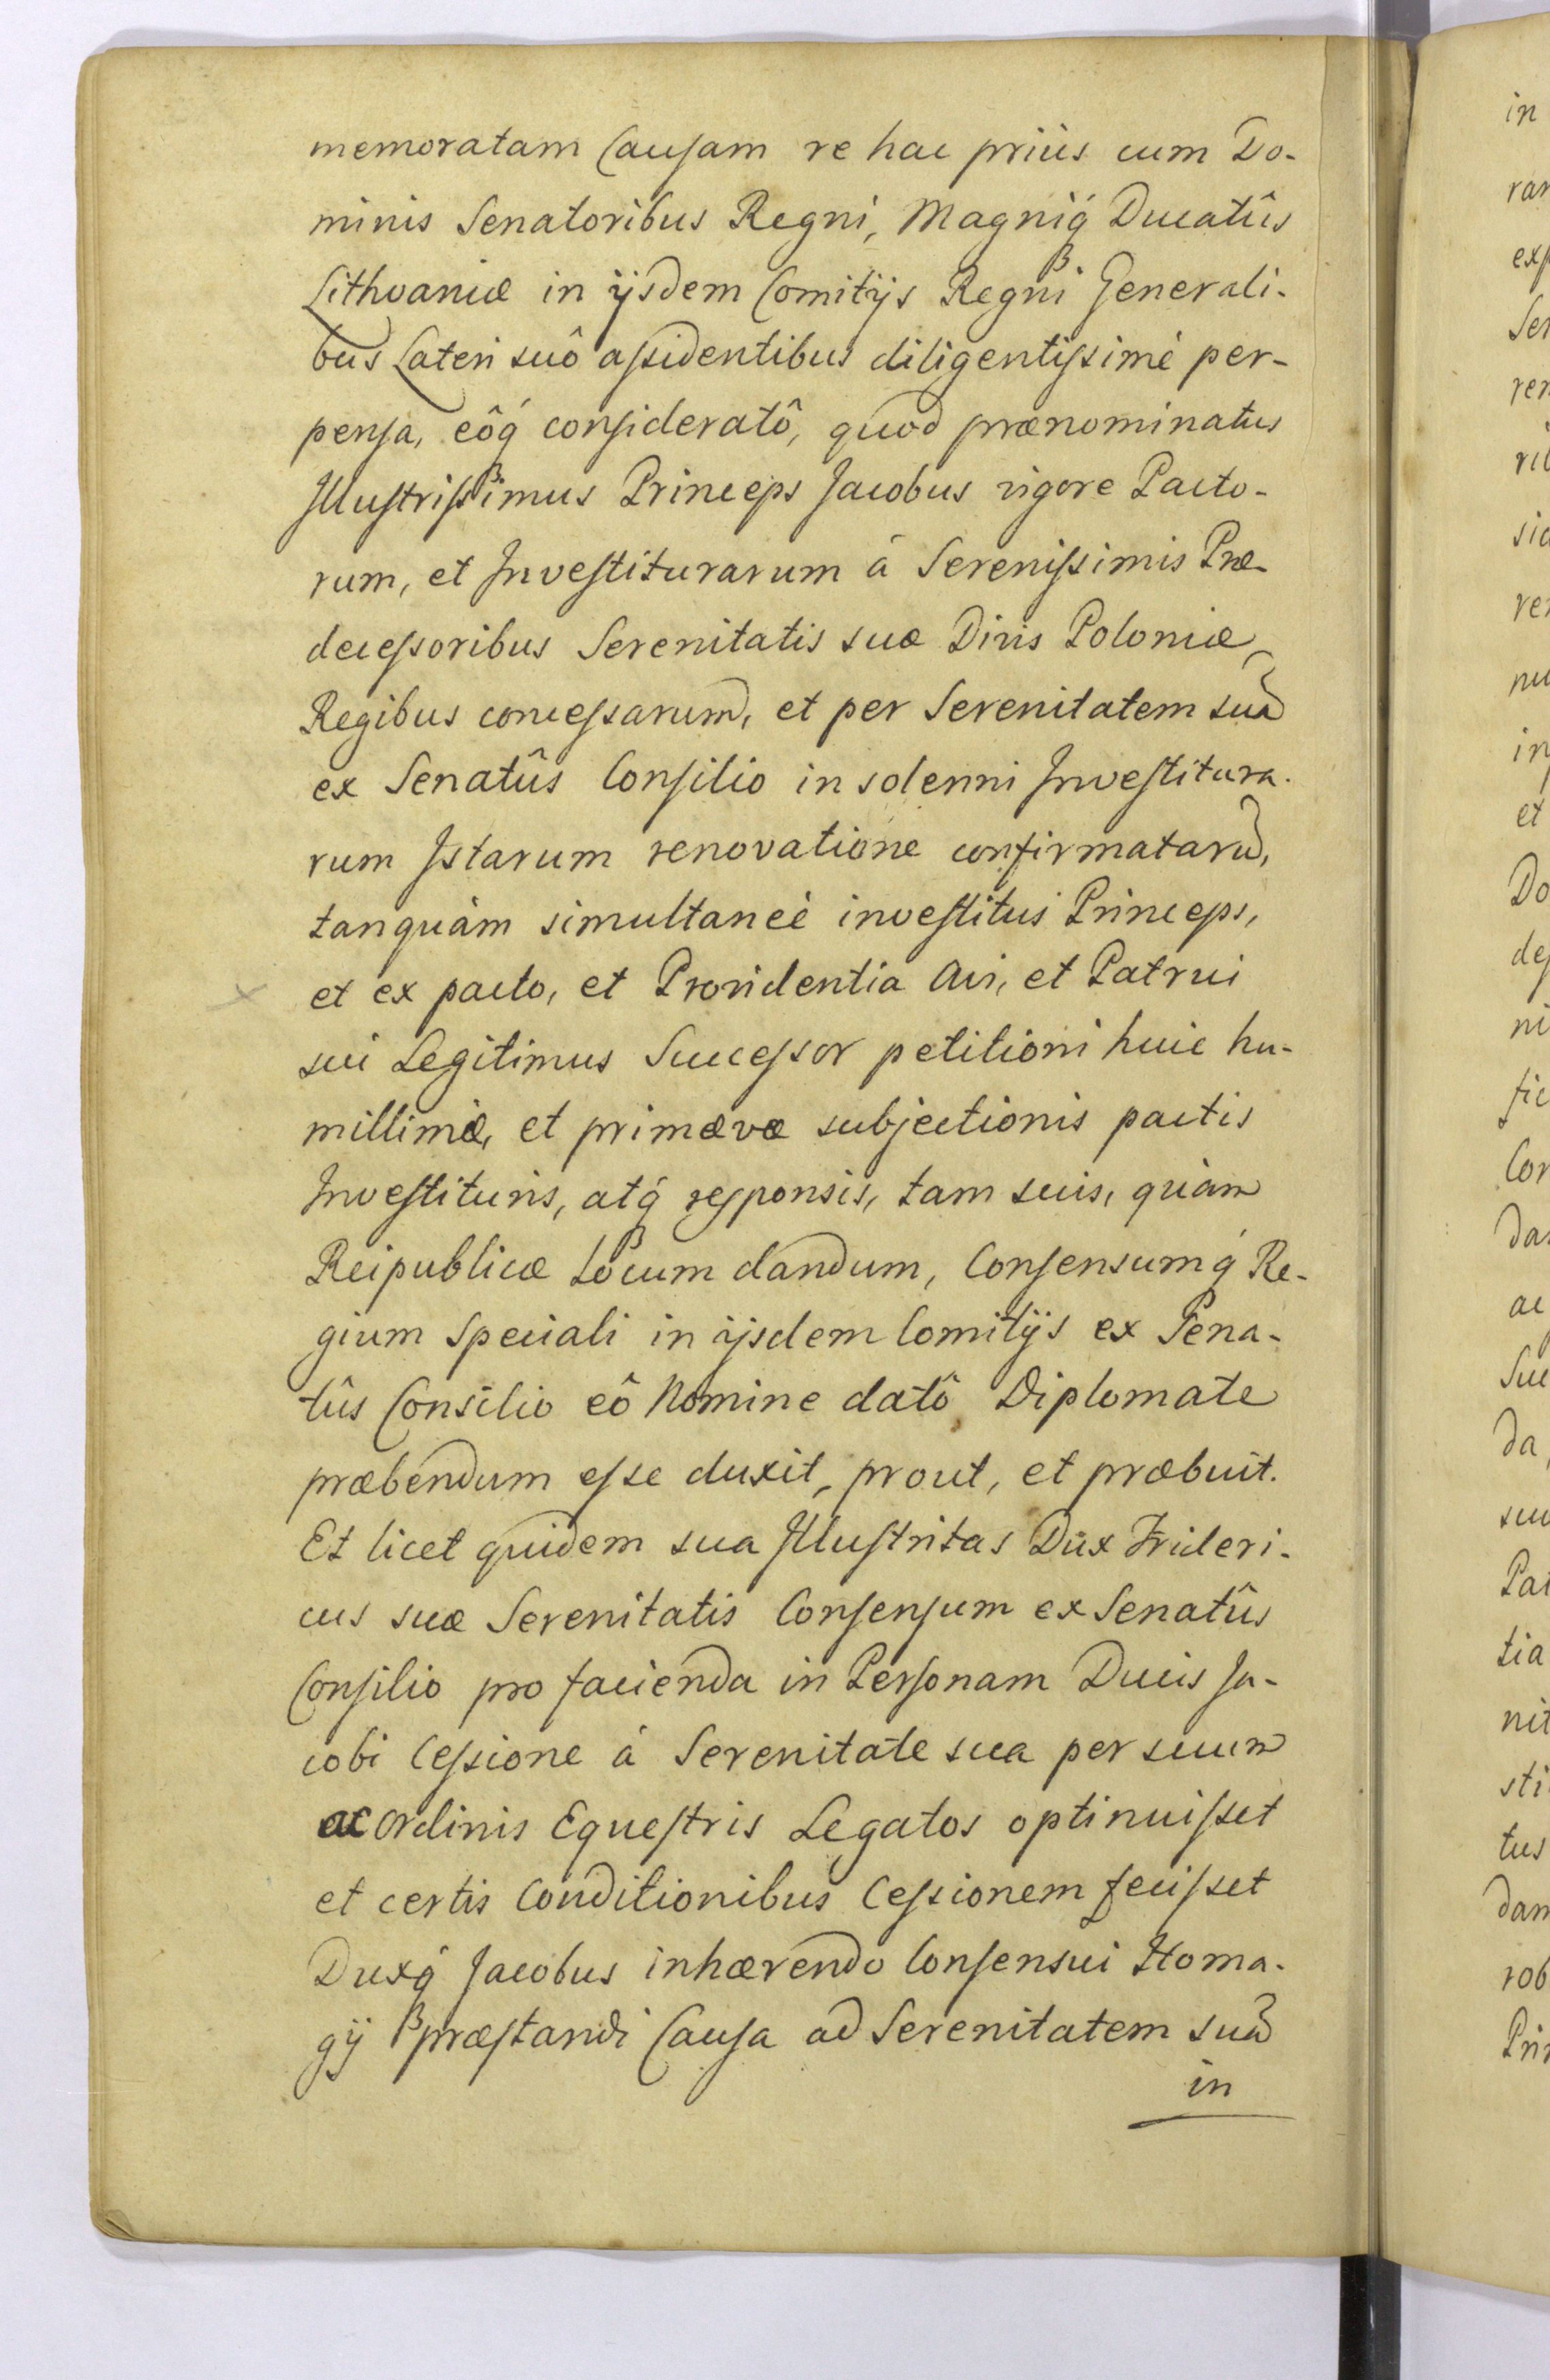 memoratam Causam re hac priùs cum Do-
minis Senatoribus Regni, Magniq́ Ducatûs
Lithvaniæ in ijsdem Comitijs Regni Generali-
bus Lateri suô aſsidentibus diligentiſsimè per-
penſa, eôq́ conſideratô, quod prænominatus
Illuſtriſsimus Princeps Jacobus vigore Pacto-
rum, et Inveſtiturarum á Sereniſsimis Præ-
deceſsoribus Serenitatis suæ Divis Poloniæ
Regibus conceſsarum, et per Serenitatem suã
ex Senatûs Conſilio in solenni Inveſtitura-
rum Istarum renovatione confirmatarũ,
tanquàm simultaneè inveſtitus Princeps,
et ex pacto, et Providentia Avi, et Patrui
sui Legitimus Succeſsor petitioni huic hu-
millimæ, et primævæ subjectionis pactis
Inveſtituris, atq́ reſponsis, tam suis, quàm
Reipublicæ Locum dandum, Conſensumq́ Re-
gium Speciali in ijsdem Comitijs ex Sena-
tûs Consilio eô Nomine datô Diplomate
præbendum eſse duxit, prout, et præbuit.
Et licet quidem sua Illuſtritas Dux Frideri-
cus suæ Serenitatis Conſenſum ex Senatûs
Conſilio pro facienda in Perſonam Ducis Ja-
cobi Ceſsione á Serenitate sua per suum
ac Ordinis Equeſtris Legatos optinuiſset
et certis Conditionibus Ceſsionem feciſset
Duxq́ Jacobus inhærendo Conſensui Homa-
gij præſtandi Cauſa ad Serenitatem suã
in